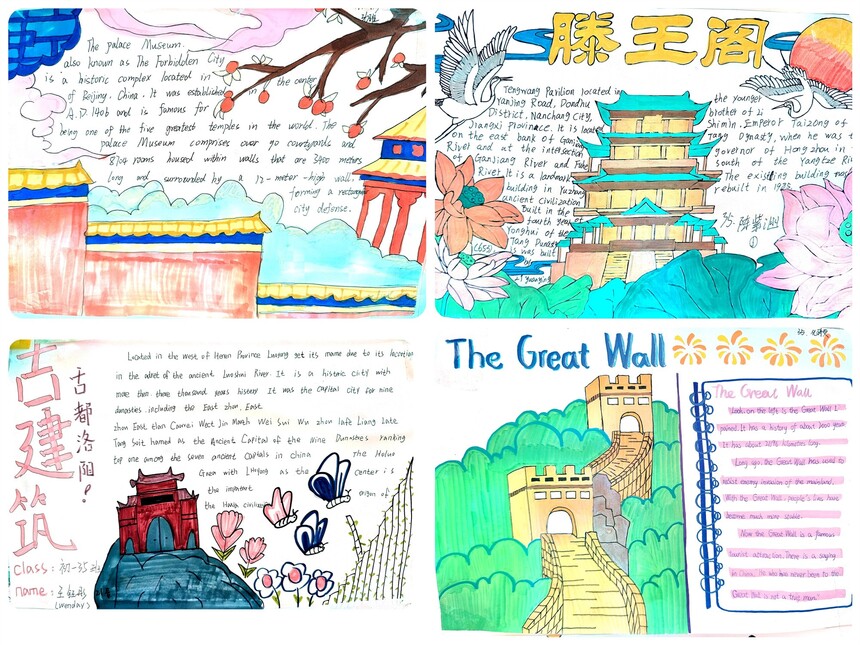 The palace Museum.
also known as The Forbidden City
is a historic complex located in the center
of Beijing, China. It was established
A.D.1406 and is famous for
being one of the five greatest temples in the world. The
palace Museum comprises over 90 courtyards and
8704 rooms housed within walls that are 3400 meters
long and surrounded by a 12-meter-high wall.
forming a rectangle
city defense.
滕王阁
Tengwang Pavilion located in
Yanjing Road, Donghu
District, Nanchang City,
Jiangxi Province. It is located
on the east bank of Ganjiang
River and at the intersection
of Ganjiang River and
River. It is a landmark
building in Yuzhang
ancient civilization
Built in the
fourth year of
Yonghui of the
Tang Dynasty
(653) is was built
by
Li Yuanying
the younger
brother of Li
Shimin, Emperor Taizong of
Tang Dynasty, when he was t
governor of Hongzhou in
south of the Yangtze Ri
The existing building was
rebuilt in 1985
古建筑
古都洛阳!
Located in the west of Henan Province Luoyang get its name due to its location
in the of the ancient Luoshui River. It is a historic city with
more than three thousand years history It was the capital city for nine
dynasties including the East zhou, East
zhou East Han Caowei West Jin North Wei Sui Wu zhou late Liang Late
Tang Suit named as the Ancient Capital of the nine Dynasties ranking
top one among the seven ancient capitals in China The Heluo
with as the center is
the important origin of
the civiliz
class: 初-35班
name:
(Wenday)
The Great Wall
The Great Wall
Look, on the left is the Great Wall I
painted. It has a history of about 2000 years
It has about 2196 kilometers long.
Long ago, the Great Wall was used to
resist enemy invasion of the mainland.
With the Great Wall, people's live have
become much more stable.
Now the Great Wall is a famous
tourist attraction. There is a saying
in China "He who has never been to the
Great Wall is not a true man."